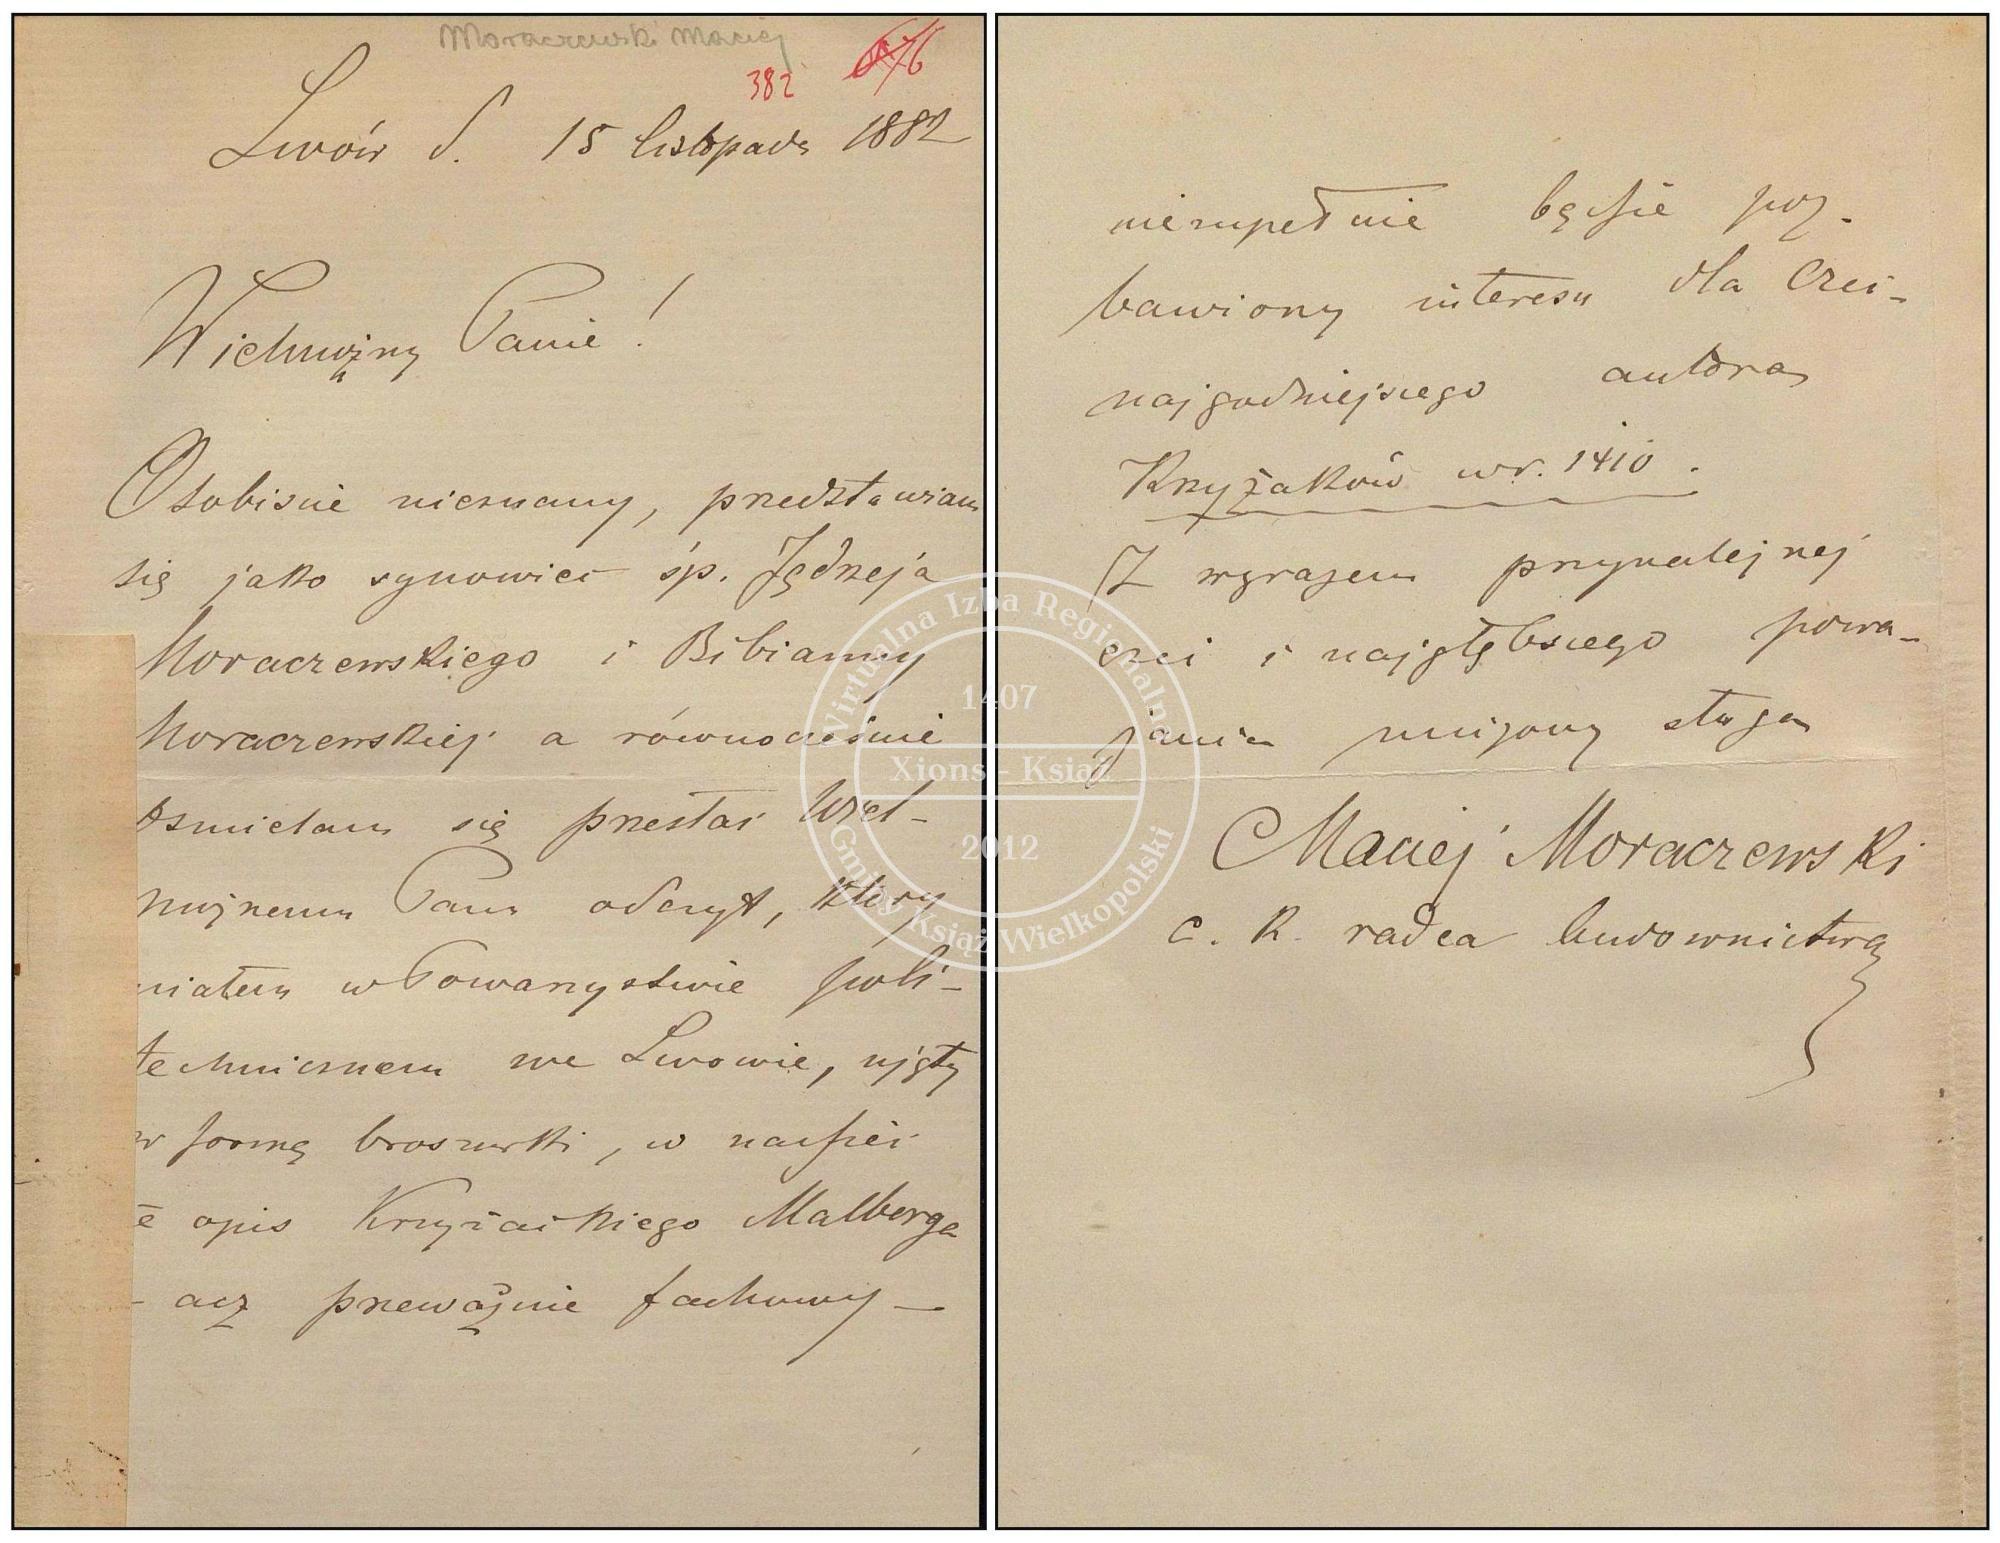 Moraczewski Maciej
382
Lwów d. 15 listopada 1882
Wielmożny Panie!
Osobiscie nieznany, przedstawiam
się jako synowiec śp. Jędrzeja
Moraczewskiego i Bibianny
Moraczewskiej a równocześnie
osmielam się przesłać Wiel-
możnemu Panu odczyt, który
miałem w Towarzystwie poli-
technicznem we Lwowie, ujęty
w formę broszurki, w nadziei
że opis Krzyżackiego Malborga
- acz przeważnie fachowy -
niezupełnie będzie poz-
bawiony interesu dla Czci-
najgodniejszego autora
Krzyżaków w r. 1410.
Z wyrazem przynależnej
czci i najgłębszego powa-
żania uniżony sługa
Maciej Moraczewski
c. k. radca budownictwa
Wirtualna Izba Regionalna
1407
Xions - Książ
2012
Gminy Książ Wielkopolski